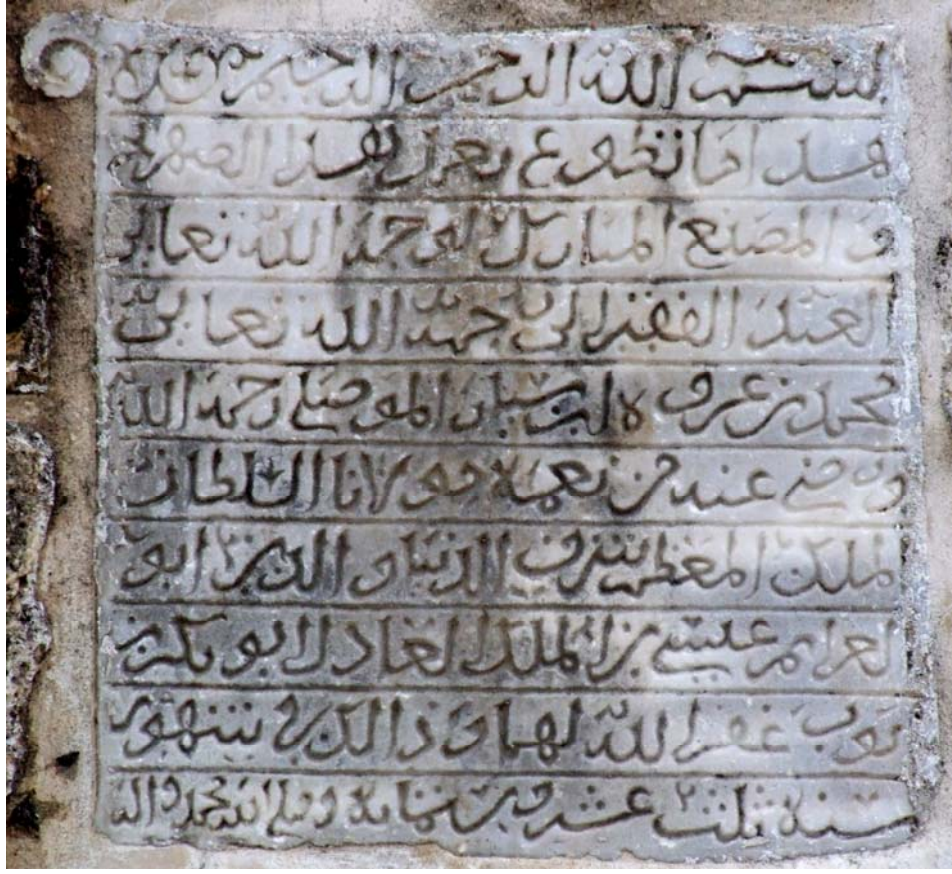 بسم الله الرحمن الرحيم
هذا ما تطوع بعمل هذا الصهريج
والمصنع المبارك لوجه الله تعالى
العبد الفقير الى رحمة الله تعالى
محمد بن عروة ابن سيار الموصلي رحمه الله
وذلك من نعمة مولانا السلطان
الملك المعظم شرف الدنيا والدين ابو
العزايم عيسى بن الملك العادل ابو بكر بن
ايوب غفر الله لهما وذالك في شهور
سنة ثلث عشر وستماية وصلى الله على محمد واله